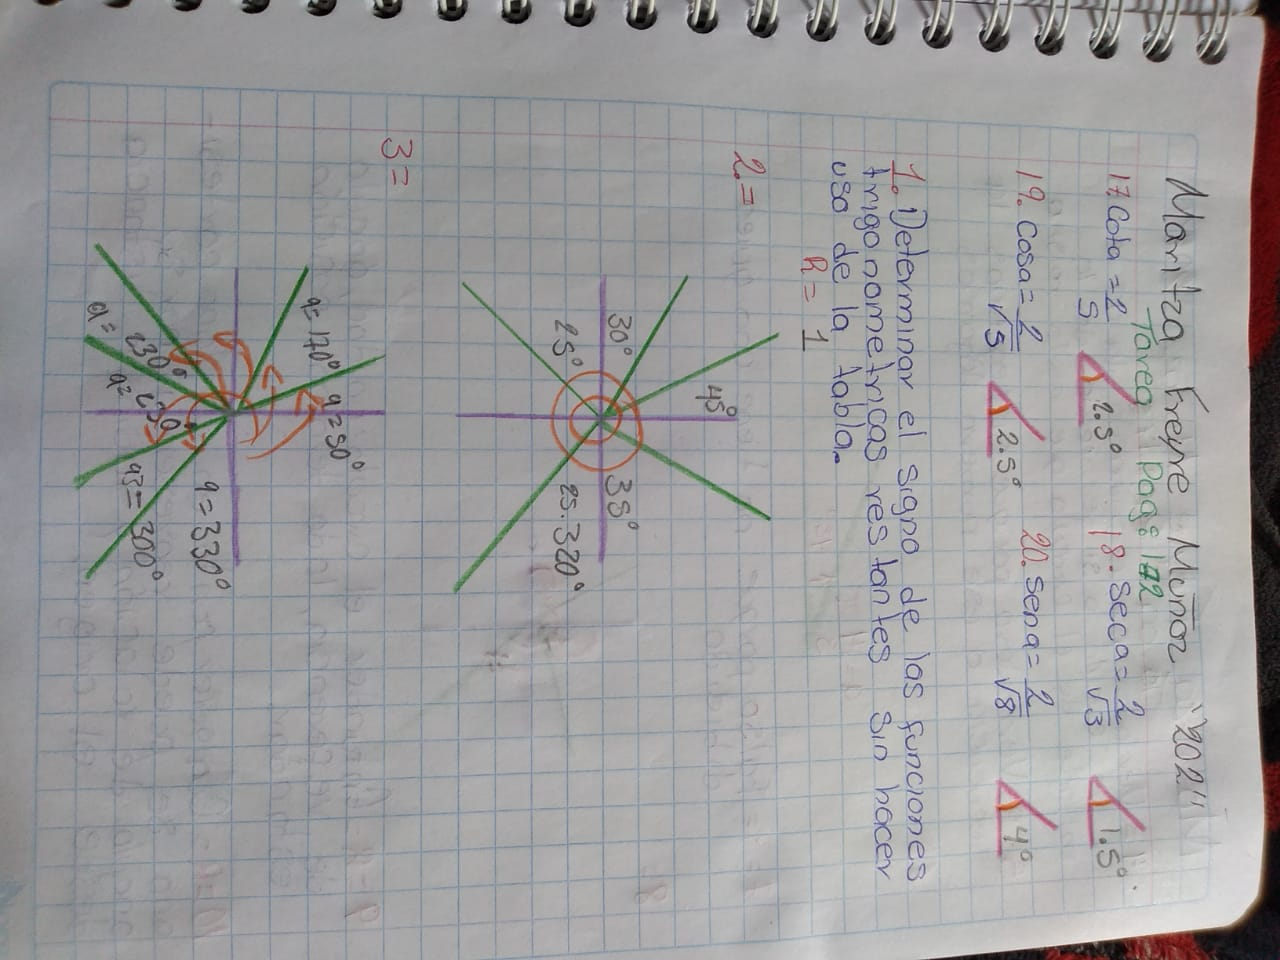 Maritza Freyre Muñoz "202"
Tarea Pag: 172
17. Cota = 2/5 2.5° 18. Seca = 2/√3 1.5°
19. Cosa = 2/√5 2.5° 20. Sena = 2/√8 4°
1. Determinar el signo de las funciones
trigonometricas restantes sin hacer
uso de la tabla.
R = 1
2.=
45°
30° 35°
25° 25.320°
3=
a=170° a=50°
a= 230°
a= 250 a=330°
a5= 300°